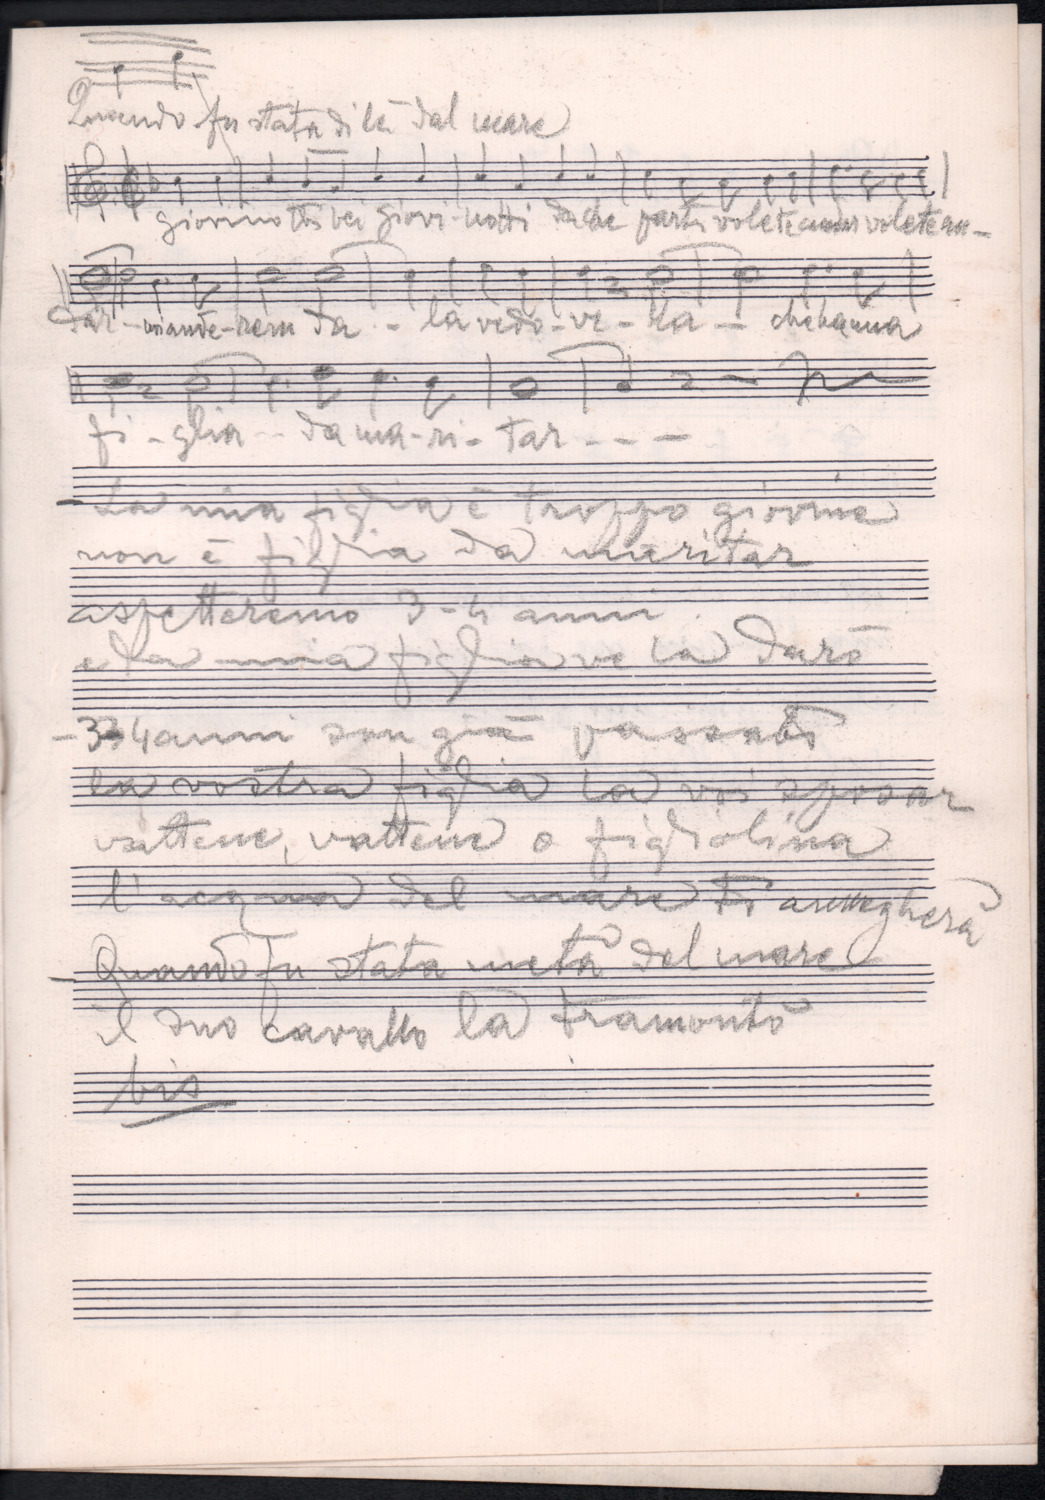 Quando fu stata di là dal mare
giovinotti bei giovi-notti da che parti volete andar volete an-
dar - - mande-rem da - - la vedo-ve-lla - - che ha una
fi-glia - - da ma-ri-tar - - - -
- La mia figlia è troppo giovine
non è figlia da maritar
aspetteremo 3-4 anni
e la mia figlia ve la darò
- 3 4 anni son già passati
la vostra figlia la voi sposar
vattene, vattene o figliolina
l'acqua del mare ti anneghera
- Quando fu stata metà del mare
il suo cavallo la tramontò
bis